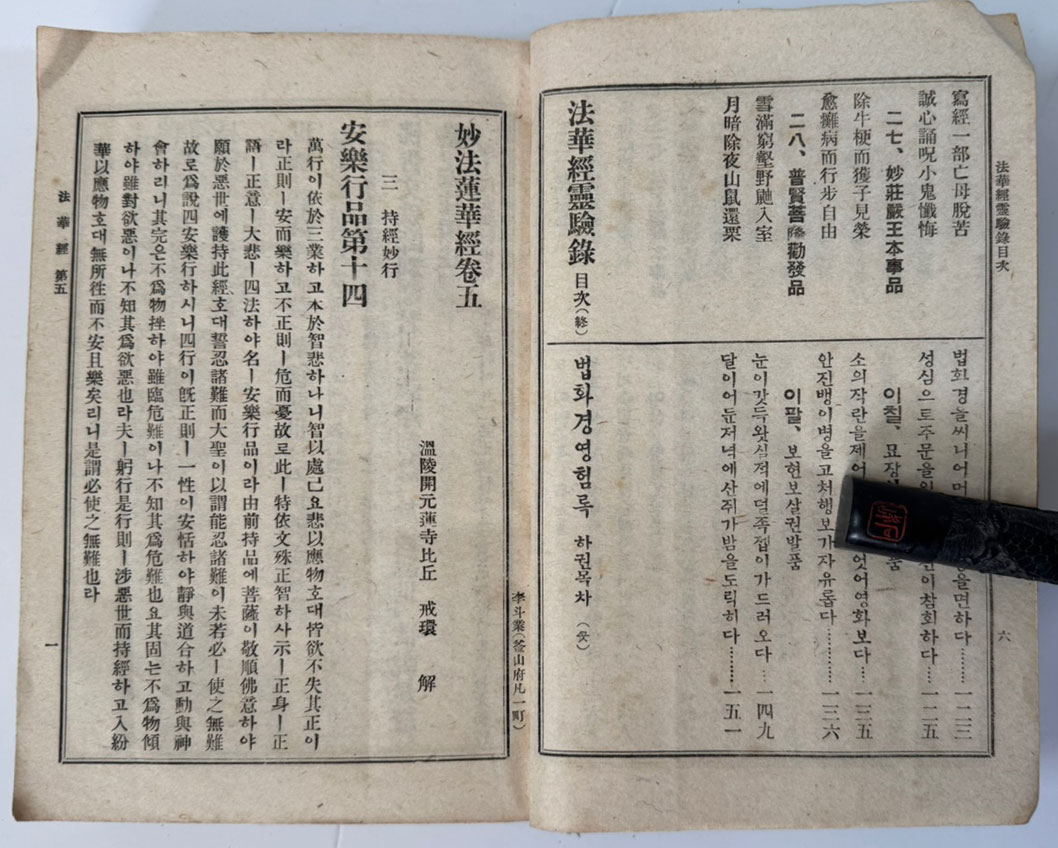 法華經靈驗錄目次
寫經一部亡母脫苦
誠心誦呪小鬼懺悔
二七、妙莊嚴王本事品
除牛梗而獲子見榮
愈癱病而行步自由
二八、普賢菩薩勸發品
雪滿窮壑野鼬入室
月暗除夜山鼠還栗
法華經靈驗錄 目次(終)
법화경을써니어머 을면하다……一二三
성심으로주문을 이참회하다……一二五
이칠、묘장 품
소의작란을제어 엇어영화보다……一三五
안진뱅이병을고처행보가자유롭다……一三六
이팔、보현보살권발품
눈이갓득왓실적에덜족젭이가드러오다…一四九
달이어둔저녁에산쥐가밤을도릭히다……一五一
법화경영험록 하권목차 (終)
六
李斗業(釜山府凡一町)
妙法蓮華經卷五
溫陵開元蓮寺比丘 戒環 解
三 持經妙行
安樂行品第十四
萬行이依於三業하고本於智悲하나니智以處己요悲以應物호대皆欲不失其正이
라正則ㅣ安而樂하고不正則ㅣ危而憂故로此ㅣ特依文殊正智하사示ㅣ正身ㅣ正
語ㅣ正意ㅣ大悲ㅣ四法하야名ㅣ安樂行品이라由前持品에菩薩이敬順佛意하야
願於惡世에護持此經호대誓忍諸難而大聖이以謂能忍諸難이未若必ㅣ使之無難
故로爲說四安樂行하시니四行이旣正則ㅣ一性이安恬하야靜與道合하고動與神
會하리니其完은不爲物挫하야雖臨危難이나不知其爲危難也요其固는不爲物傾
하야雖對欲惡이나不知其爲欲惡也라夫ㅣ躬行是行則ㅣ涉惡世而持經하고入紛
華以應物호대無所徃而不安且樂矣리니是謂必使之無難也라
法華經 第五
一